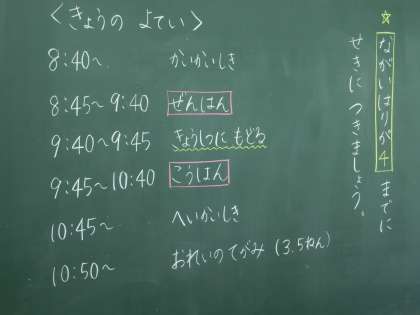 ＜きょうの よてい＞
8:40～ かいかいしき
8:45～9:40 ぜんはん
9:40～9:45 きょうしつに もどる
9:45～10:40 こうはん
10:45～ へいかいしき
10:50～ おれいのてがみ（3.5ねん）
☆ながいはりが4までに
せきに つきましょう。